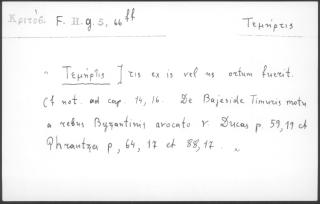 Κριτόβ. F. II. g. 5, 66 ff
Τεμήρτις
" Τεμήρτις ] τις ex is vel us ortum fuerit.
Cf not. ad cap. 14, 16. De Bajeside Timuris motu
a rebus Byzantinis avocato v. Ducas p. 59, 19 et
Phrantza p, 64, 17 et 88, 17.